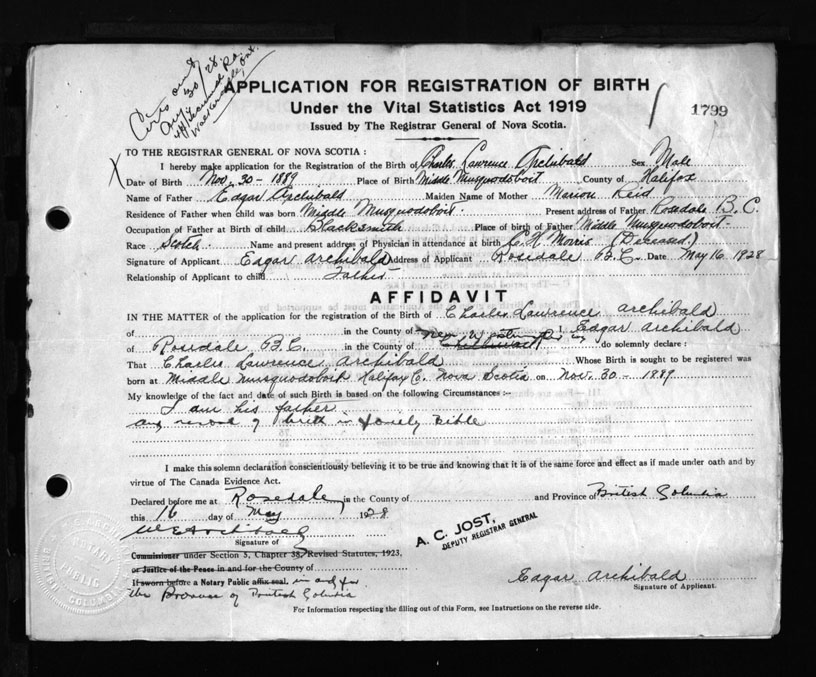 APPLICATION FOR REGISTRATION OF BIRTH
Under the Vital Statistics Act 1919
Issued by The Registrar General of Nova Scotia.
1799
TO THE REGISTRAR GENERAL OF NOVA SCOTIA :
I hereby make application for the Registration of the Birth of Charles Lawrence Archibald Sex Male
X Date of Birth Nov. 30 - 1889 Place of Birth Middle Musquodoboit County of Halifax
Name of Father Edgar Archibald Maiden Name of Mother Marion Reid
Residence of Father when child was born Middle Musquodoboit Present address of Father Rosedale B.C.
Occupation of Father at Birth of child Blacksmith Place of birth of Father Middle Musquodoboit
Race Scotch Name and present address of Physician in attendance at birth Morris (Deceased.)
Signature of Applicant Edgar Archibald Address of Applicant Rosedale B.C. Date May 16 1928
Relationship of Applicant to child Father
AFFIDAVIT
IN THE MATTER of the application for registration of the Birth of Charles Lawrence Archibald
of in the County of I, Edgar Archibald
of Rosedale B.C. in the County of do solemnly declare :
That Charles Lawrence Archibald Whose Birth is sought to be registered was
born at Middle Musquodoboit Halifax C. Nova Scotia on Nov. 30 - 1889
My knowledge of the fact and date of such Birth is based on the following Circumstances :-
I am his father
any record of birth in family Bible
I make this solemn declaration conscientiously believing it to be true and knowing that it is of the same force and effect as if made under oath and by
virtue of The Canada Evidence Act.
Declared before me at Rosedale in the County of and Province of British Columbia
this 16 day of May 1928
A. C. JOST,
DEPUTY REGISTRAR GENERAL
Signature of
Commissioner under Section 3, Chapter 38, Revised Statutes, 1923,
or Justice of the Peace in and for the County of
If sworn before a Notary Public affix seal. in and for
the Province of British Columbia
Edgar Archibald
Signature of Applicant.
For Information respecting the filling out of this Form, see Instructions on the reverse side.